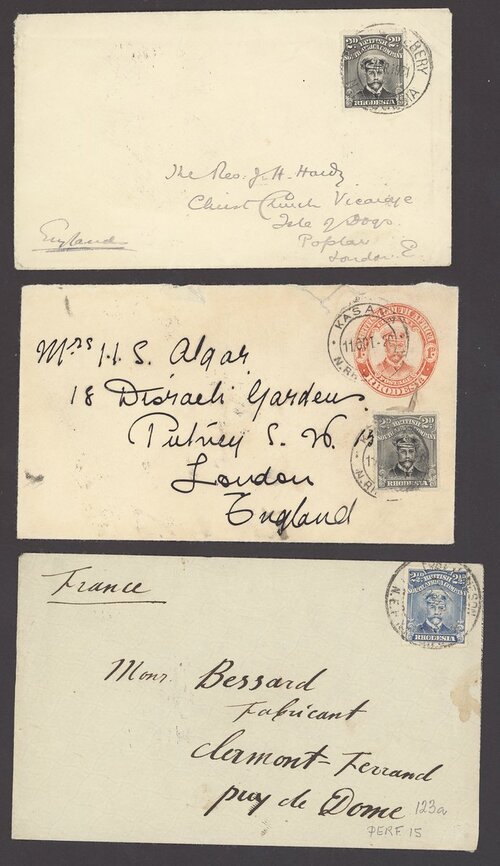 2D BRITISH 2D
SOUTH AFRICA COMPANY
RHODESIA
The Rev: J. H. Hardy
Christ Church Vicarage
Isle of Dogs
Poplar
London. E.
England
BRITISH SOUTH AFRICA COMPANY
RHODESIA
KASAMA
N. RH
Mrs H. S. Algar
18 Disraeli Gardens
Putney S. W. 15
London
England
2D BRITISH 2D
SOUTH AFRICA COMPANY
RHODESIA
N. RH
France
BRITISH
SOUTH AFRICA COMPANY
RHODESIA
FORT JAMESON
Monr Bessard
Fabricant
Clermont-Ferrand
puy de Dome
123a
PERF. 15